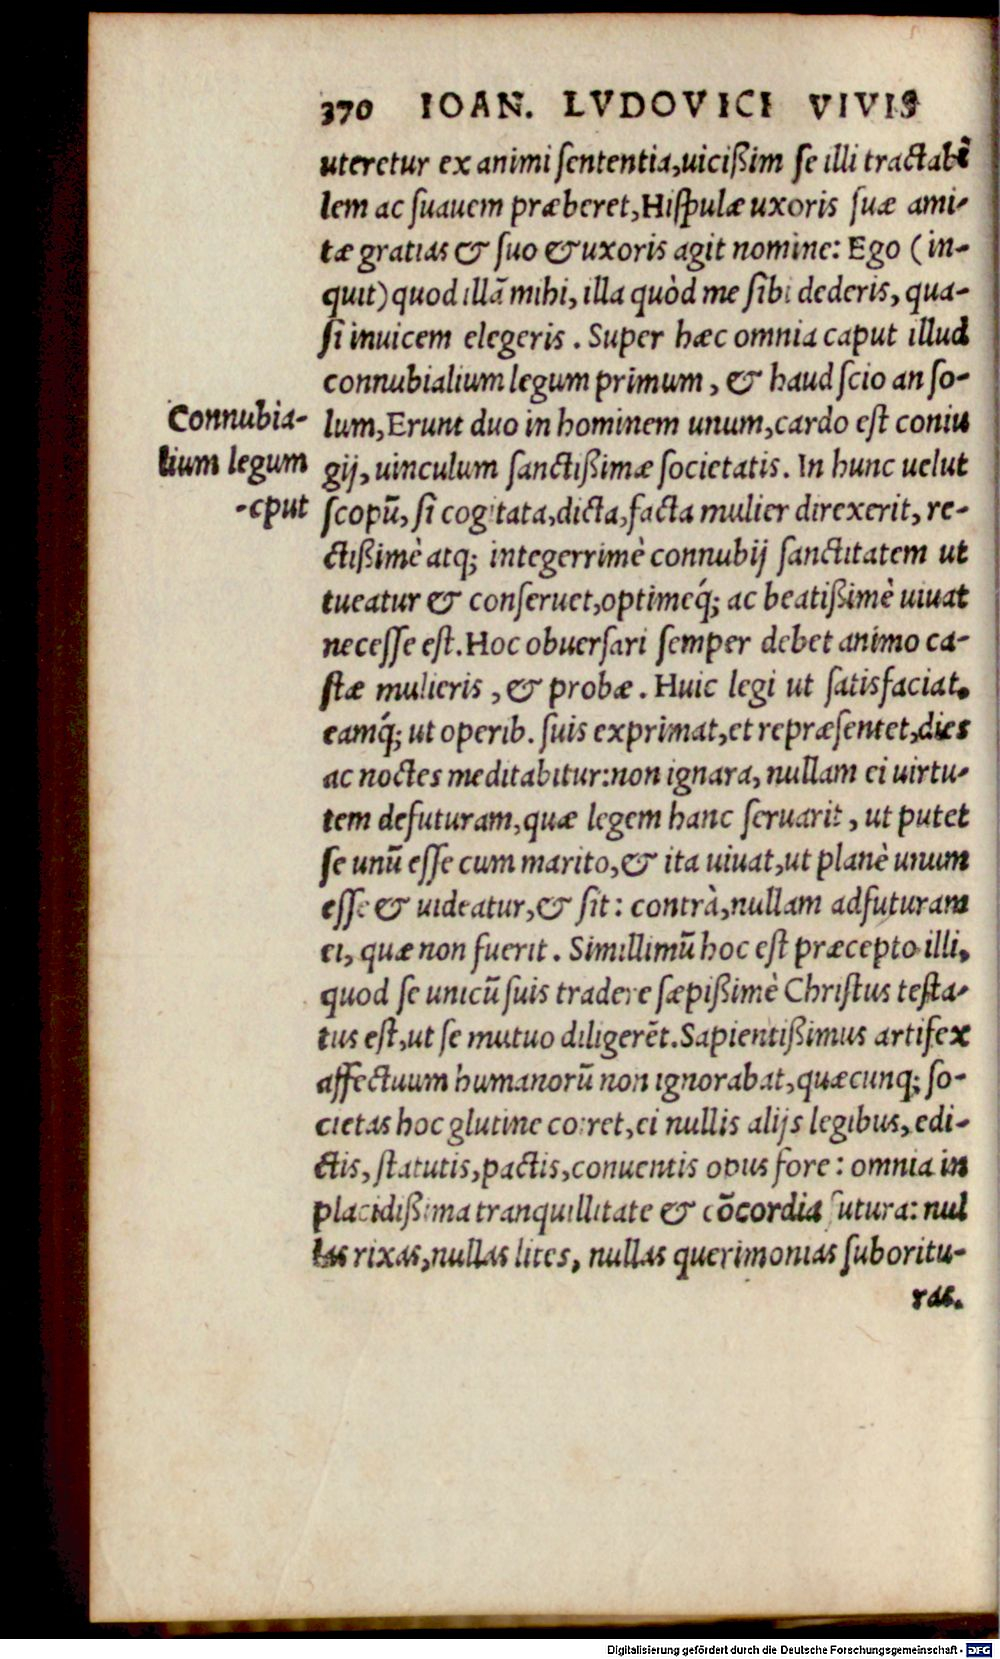 370 IOAN. LVDOVICI VIVIS
uteretur ex animi sententia, uicißim se illi tractabi
lem ac suauem præberet, Hispulæ uxoris suæ ami-
tæ gratias & suo & uxoris agit nomine: Ego (in-
quit) quod illã mihi, illa quòd me sibi dederis, qua-
si inuicem elegeris. Super hæc omnia caput illud
connubialium legum primum, & haud scio an so-
Connubia-
lium legum
-cput
lum, Erunt duo in hominem unum, cardo est coniu
gij, uinculum sanctißimæ societatis. In hunc uelut
scopũ, si cogitata, dicta, facta mulier direxerit, re-
ctißimè atq; integerrimè connubij sanctitatem ut
tueatur & conseruet, optimeq́; ac beatißimè uiuat
necesse est. Hoc obuersari semper debet animo ca-
stæ mulieris, & probæ. Huic legi ut satisfaciat,
eamq́; ut operib. suis exprimat, et repræsentet, dies
ac noctes meditabitur: non ignara, nullam ei uirtu-
tem defuturam, quæ legem hanc seruarit, ut putet
se unũ esse cum marito, & ita uiuat, ut planè unum
esse & uideatur, & sit: contrà, nullam adfuturam
ei, quæ non fuerit. Simillimũ hoc est præcepto illi,
quod se unicũ suis tradere sæpißimè Christus testa-
tus est, ut se mutuo diligerẽt. Sapientißimus artifex
affectuum humanorũ non ignorabat, quæcunq; so-
cietas hoc glutine coiret, ei nullis alijs legibus, edi-
ctis, statutis, pactis, conuentis opus fore: omnia in
placidißima tranquillitate & cõcordia futura: nul
las rixas, nullas lites, nullas querimonias suboritu-
ras.
Digitalisierung gefördert durch die Deutsche Forschungsgemeinschaft - DFG